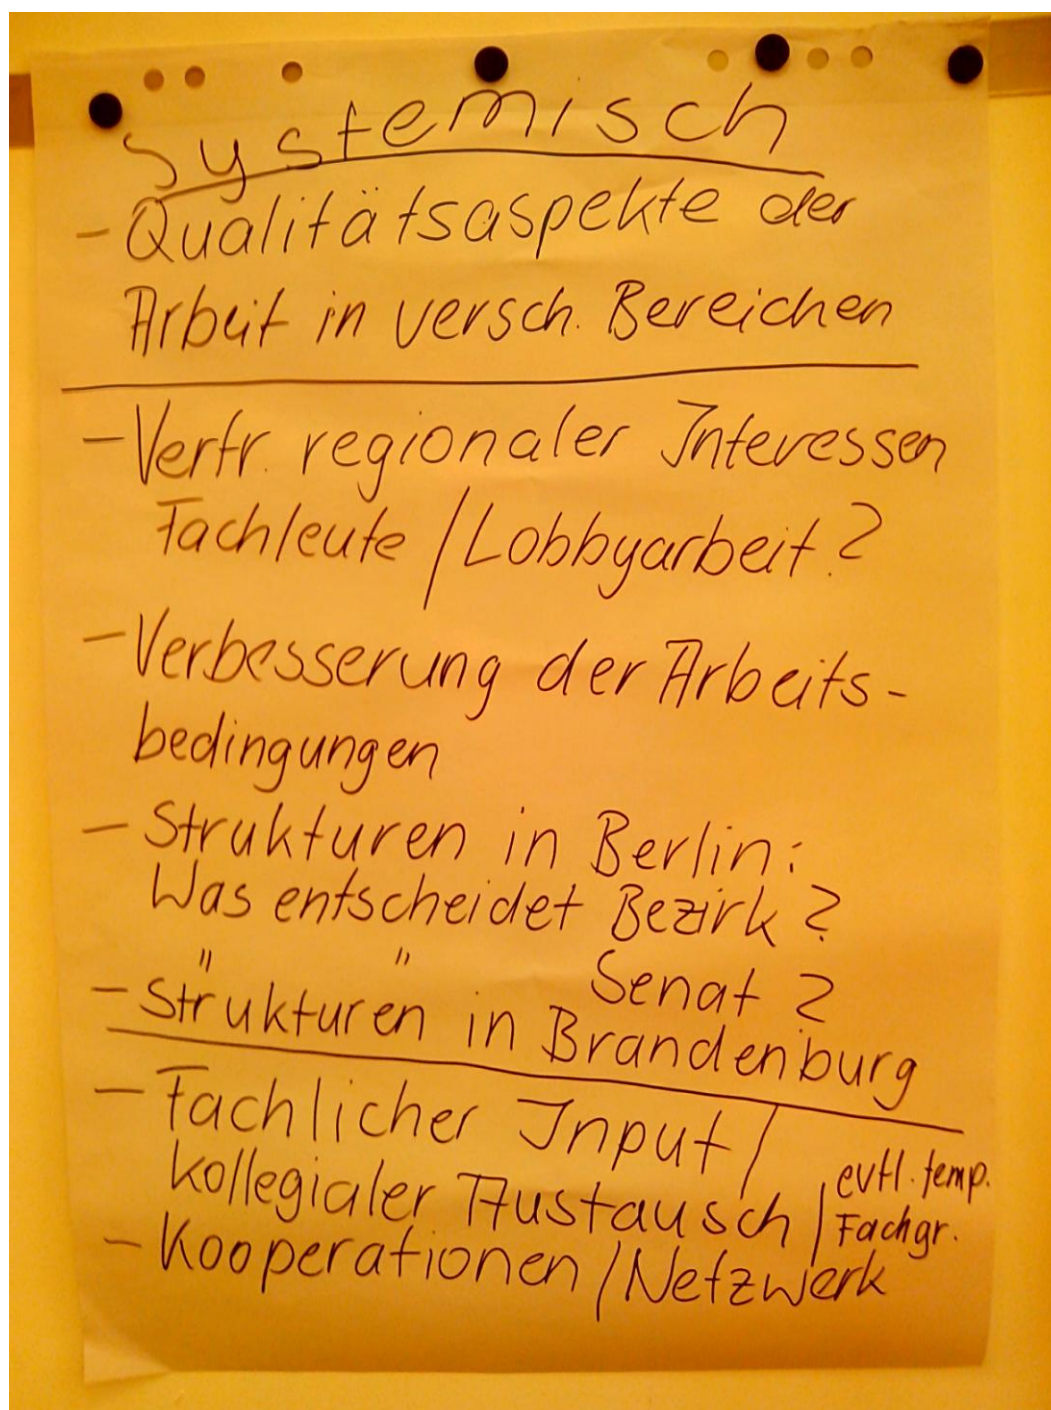 Systemisch
- Qualitätsaspekte der
Arbeit in versch. Bereichen
- Vertr. regionaler Interessen
Fachleute / Lobbyarbeit?
- Verbesserung der Arbeits-
bedingungen
- Strukturen in Berlin:
Was entscheidet Bezirk?
" " Senat?
- Strukturen in Brandenburg
- Fachlicher Input /
kollegialer Austausch / evtl. temp.
Fachgr.
- Kooperationen / Netzwerk